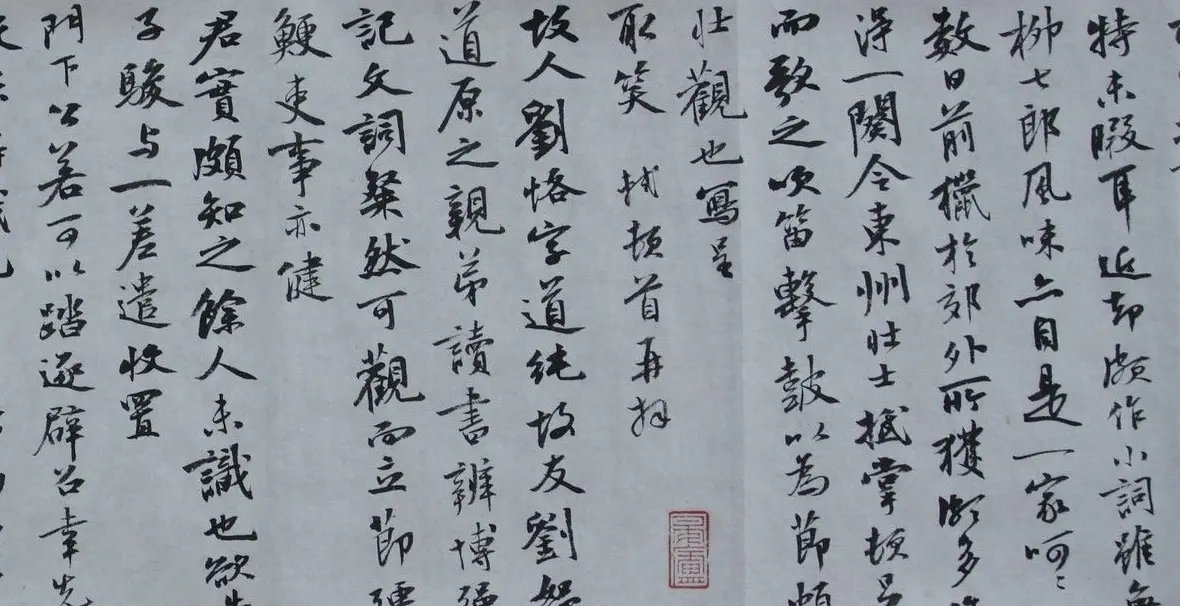 特未暇耳近却頗作小詞雖無
柳七郎風味亦自是一家呵〻
數日前獵於郊外所獲頗多
得一闋令東州壯士抵掌頓足
而歌之吹笛擊鼓以為節頗
壯觀也寫呈
取笑 軾頓首再拜
故人劉恪字道純故友劉恕
道原之親弟讀書辨博強
記文詞粲然可觀而立節強
鯁吏事亦健
君實頗知之餘人未識也欲告
子駿與一差遣收置
門下公若可以踏逐辟召幸先